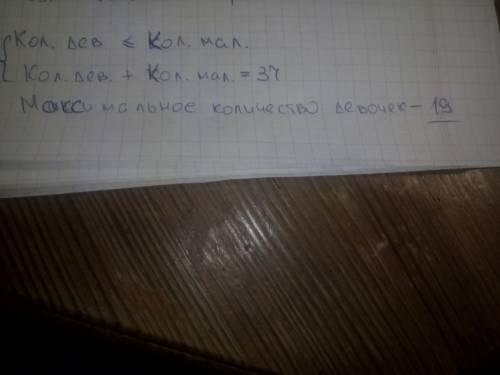 Кол. дев ≤ Кол. мал.
Кол. дев. + Кол. мал. = 37
Максимальное количество девочек – 19